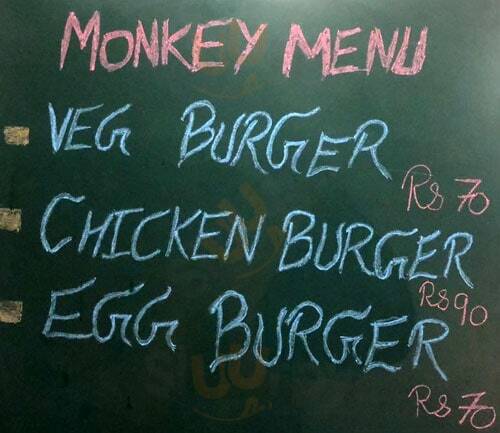 MONKEY MENU
VEG BURGER
Rs 70
CHICKEN BURGER
Rs 90
EGG BURGER
Rs 70